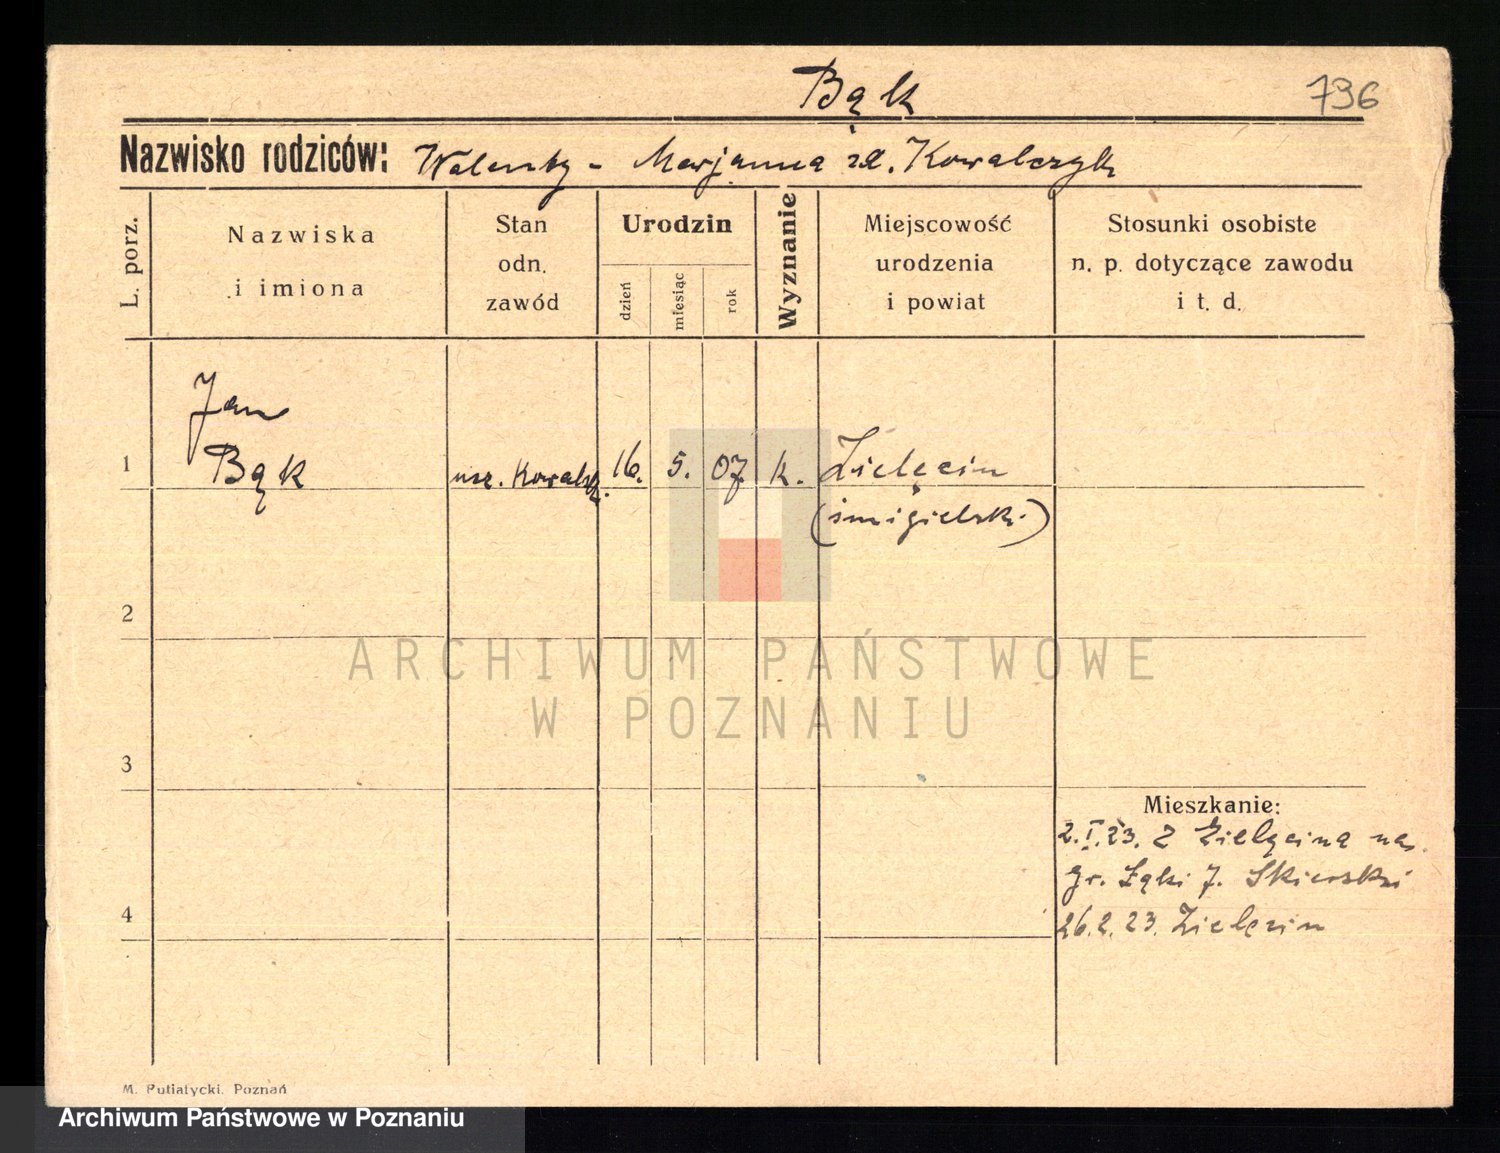 Bąk
796
Nazwisko rodziców: Walenty - Marjanna zd. Kowalczyk
L. porz.
Nazwiska
i imiona
Stan
odn.
zawód
Urodzin
dzień
miesiąc
rok
Wyznanie
Miejscowość
urodzenia
i powiat
Stosunki osobiste
n. p. dotyczące zawodu
i t. d.
Jan
1 Bąk ucz. Kowalsk. 16. 5. 07 k. Zielęcin
(śmigielski)
2
ARCHIWUM PAŃSTWOWE
W POZNANIU
3
Mieszkanie:
2.I.23. z Zielęcina na
gr. Łąki J. Skierski
4
26.2.23. Zielęcin
M. Putiatycki. Poznań
Archiwum Państwowe w Poznaniu